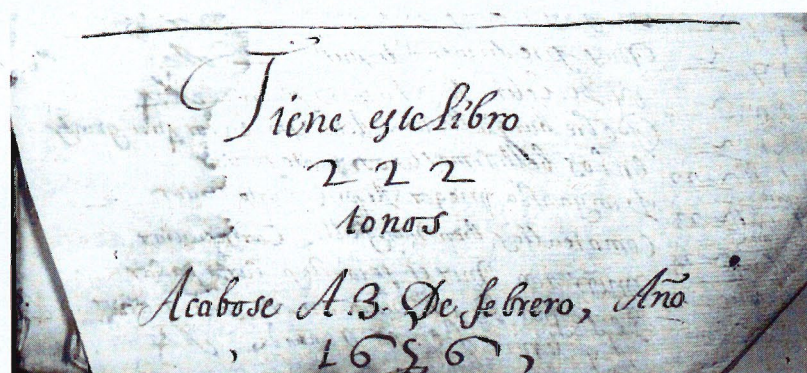 Tiene este libro
222
tonos
Acabose A.3. De febrero, Año
1656,